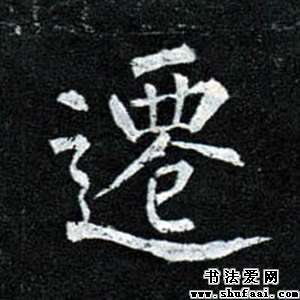 遷
书法爱网
www.shufaai.com